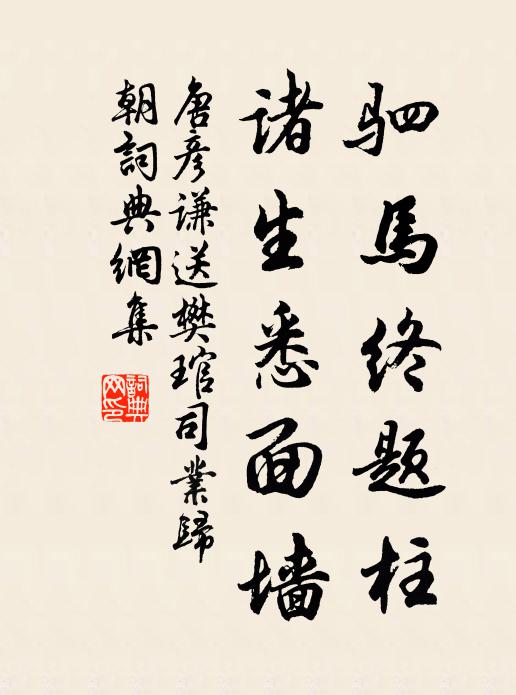 驷馬终题柱
诸生悉面墙
唐彦谦送樊琯司業歸
朝詞典網集
詞典網印